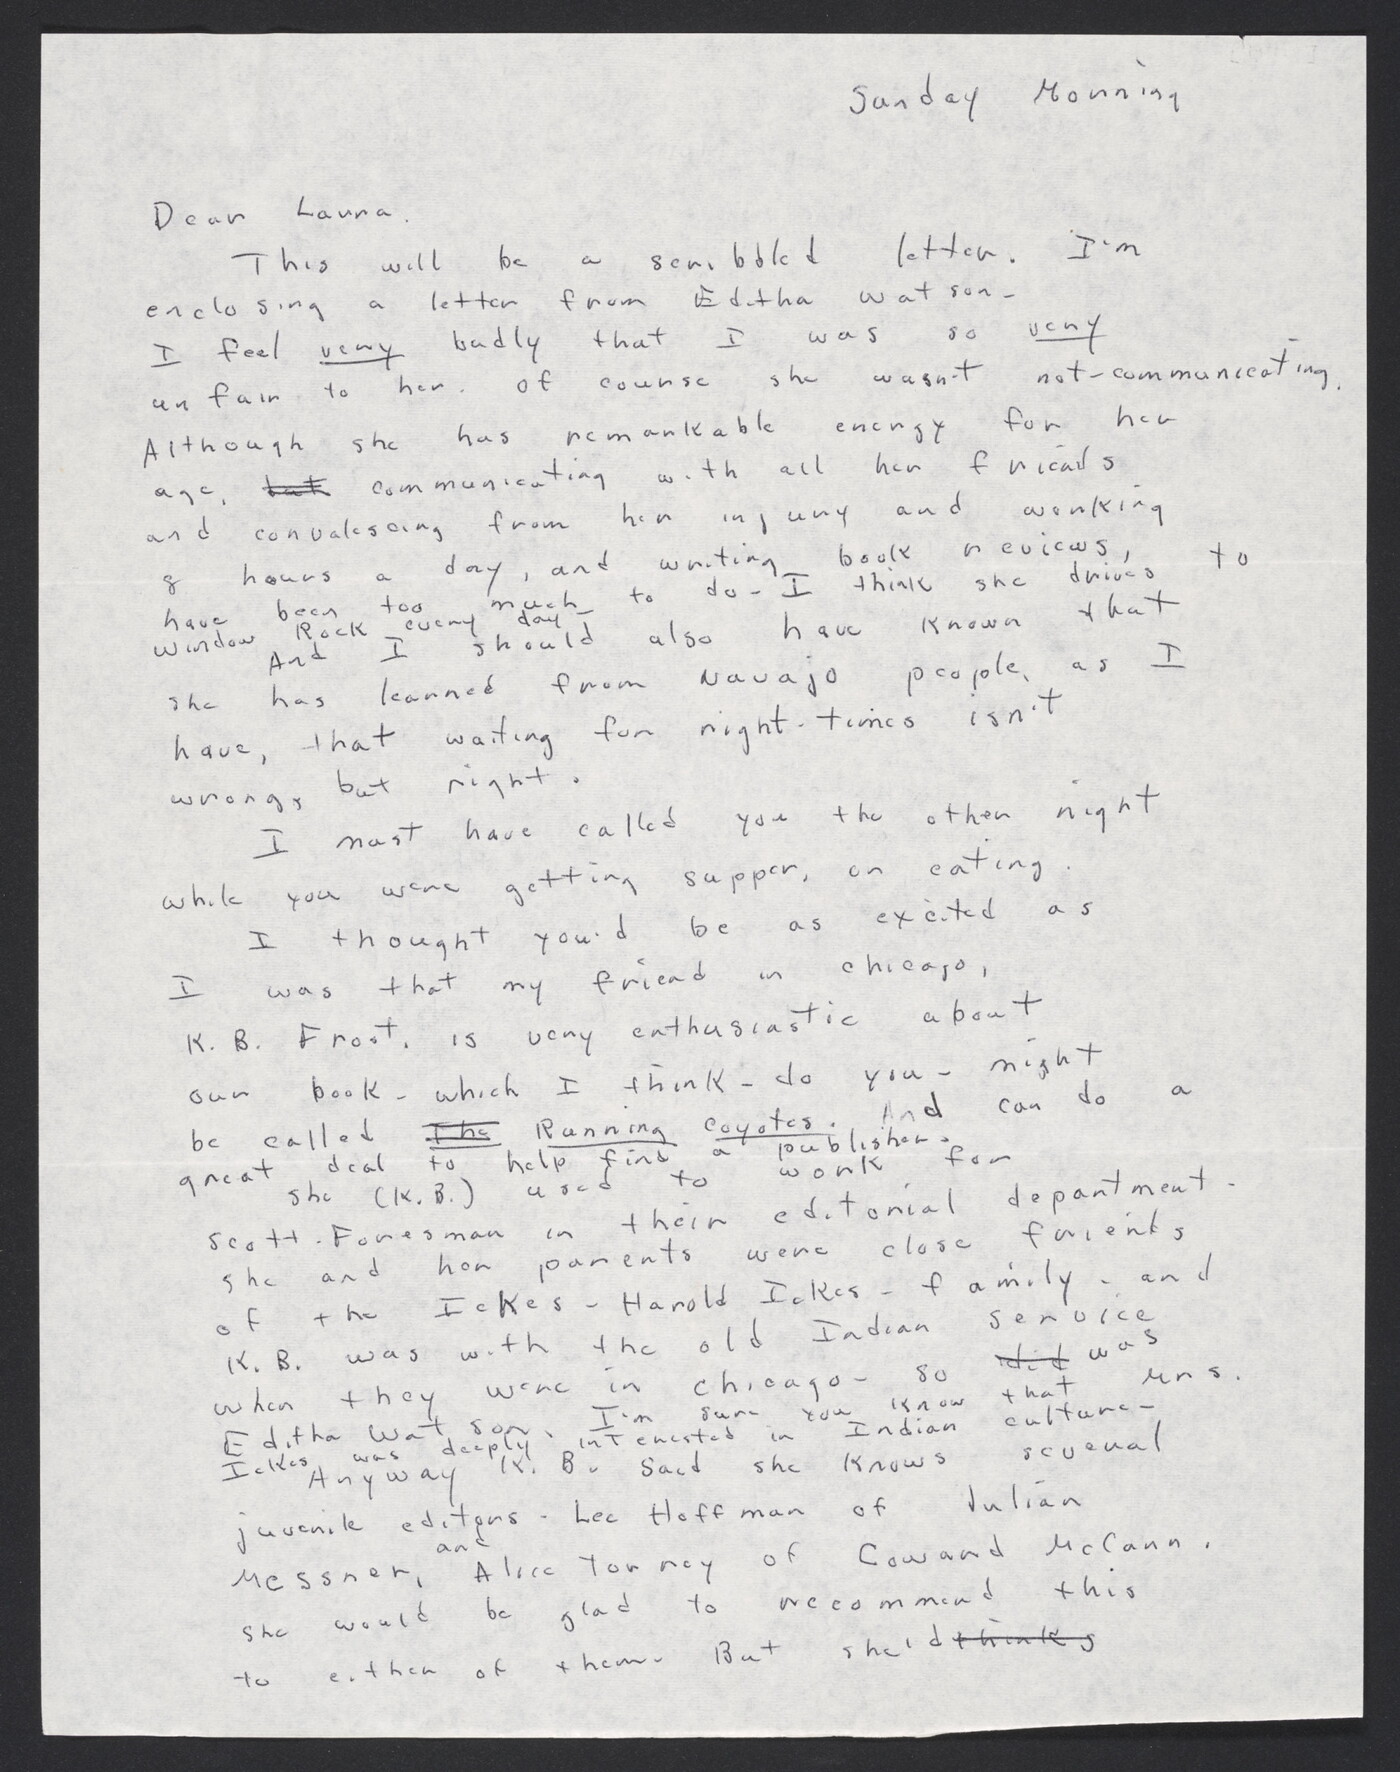 Sunday Morning
Dear Laura.
This will be a scribbled letter. I'm
enclosing a letter from Editha Watson -
I feel very badly that I was so very
unfair to her. Of course she wasn't not-communicating.
Although she has remarkable energy for her
age, but communicating with all her friends
and convalescing from her injury and working
8 hours a day, and writing book reviews,
have been too much to do - I think she drives to
Window Rock every day -
And I should also have known that
she has learned from Navajo people, as I
have, that waiting for right-times isn't
wrong, but right.
I must have called you the other night
while you were getting supper, or eating.
I thought you'd be as excited as
I was that my friend in Chicago,
K. B. Frost, is very enthusiastic about
our book - which I think - do you - might
be called The Running Coyotes. And can do a
great deal to help find a publisher.
She (K.B.) used to work for
Scott-Foresman in their editorial department -
She and her parents were close friends
of the Ickes - Harold Ickes - family - and
K. B. was with the old Indian Service
when they were in Chicago - so did was
Editha Watson. I'm sure you know that Mrs.
Ickes was deeply interested in Indian culture -
Anyway K. B. said she knows several
juvenile editors - Lee Hoffman of Julian
Messner, and Alice Torrey of Coward McCann.
She would be glad to recommend this
to either of them. But she'd thinks